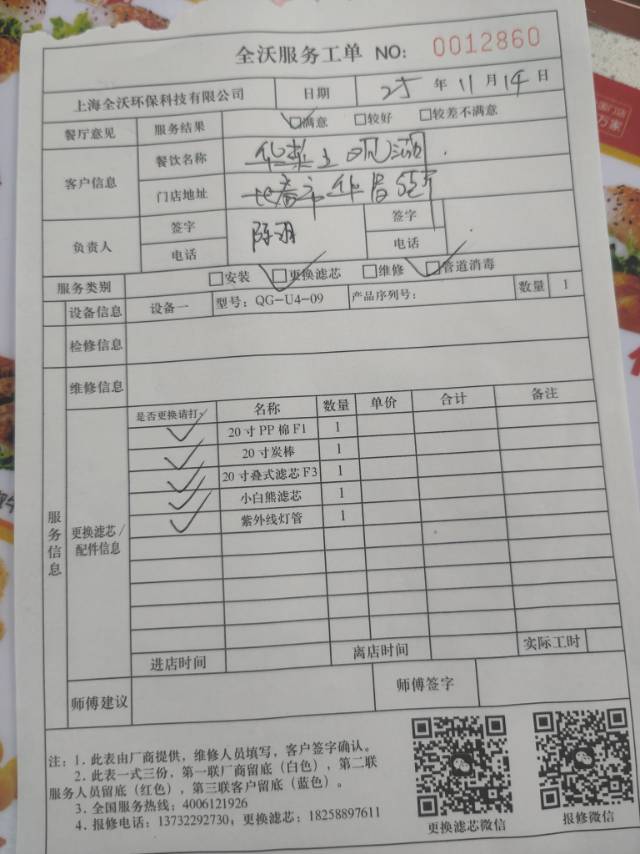 全沃服务工单 NO: 0012860
上海全沃环保科技有限公司 日期 25 年 11 月 14 日
餐厅意见 服务结果 ☑满意 □较好 □较差不满意
客户信息 餐饮名称
门店地址
负责人 签字 陈 签字
电话 电话
服务类别 □安装 ☑更换滤芯 □维修 ☑管道消毒
设备信息 设备一 型号: QG-U4-09 产品序列号: 数量 1
检修信息
维修信息
服务信息
更换滤芯/配件信息
是否更换请打✓ 名称 数量 单价 合计 备注
✓ 20寸PP棉F1 1
✓ 20寸炭棒 1
✓ 20寸叠式滤芯F3 1
✓ 小白熊滤芯 1
✓ 紫外线灯管 1
进店时间 离店时间 实际工时
师傅建议 师傅签字
注: 1. 此表由厂商提供, 维修人员填写, 客户签字确认。
2. 此表一式三份, 第一联厂商留底(白色), 第二联
服务人员留底(红色), 第三联客户留底(蓝色)。
3. 全国服务热线: 4006121926
4. 报修电话: 13732292730; 更换滤芯: 18258897611
更换滤芯微信 报修微信